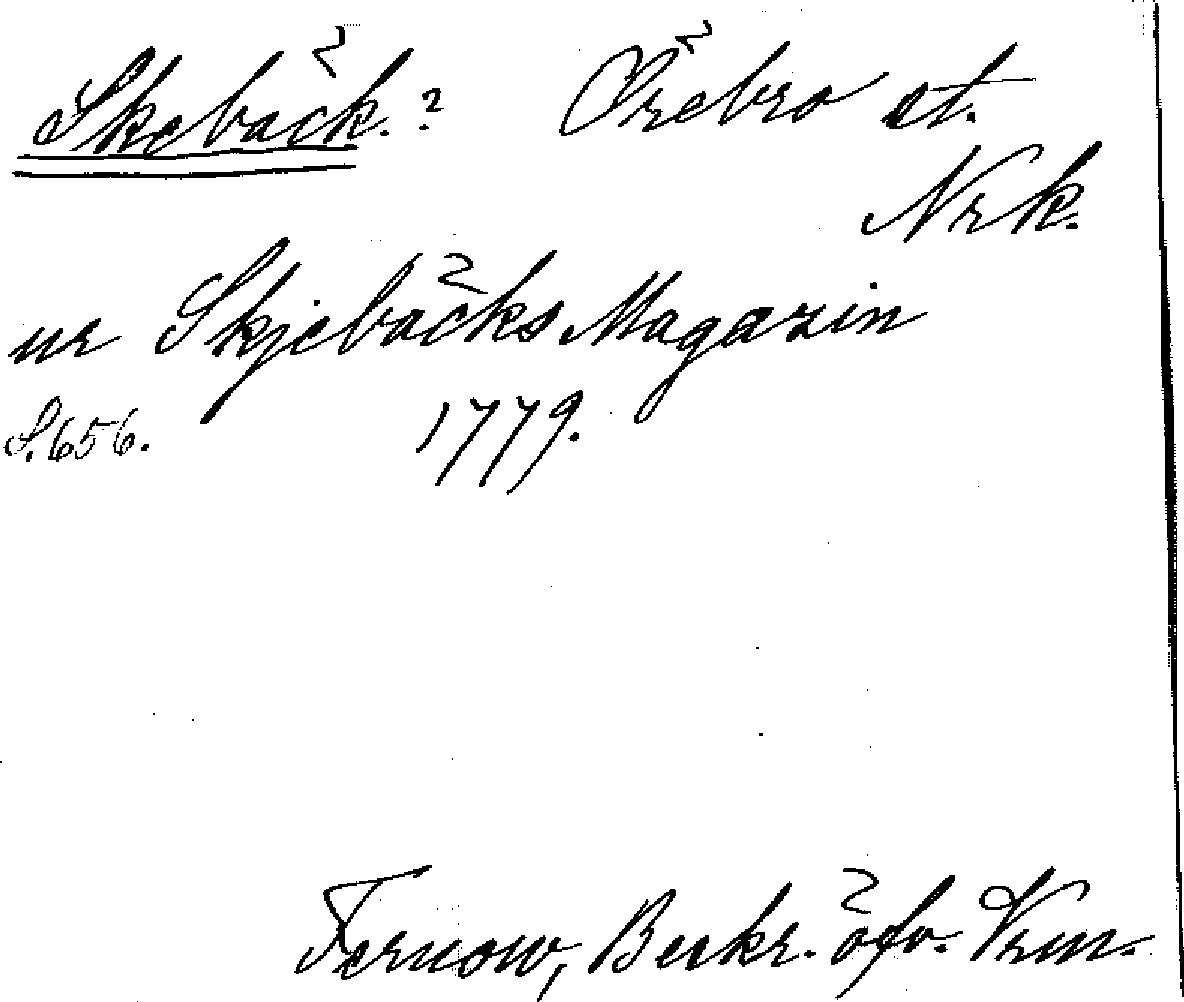 Skebäck.? Örebro st.
Nrk.
ur Skjebäcks Magazin
S. 656. 1779.
Fernow, Beskr. öfv. Vrm.